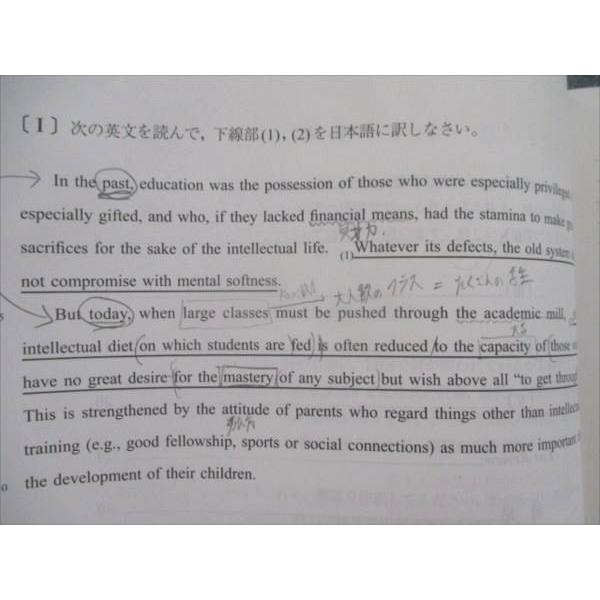 〔I〕 次の英文を読んで，下線部(1)，(2)を日本語に訳しなさい。
In the past, education was the possession of those who were especially
especially gifted, and who, if they lacked financial means, had the stamina to make
財力
sacrifices for the sake of the intellectual life. (1)Whatever its defects, the old system
not compromise with mental softness.
大人数の クラス = たくさんの 学生
5
But today, when large classes must be pushed through the academic mill,
intellectual diet on which students are fed is often reduced to the capacity of those
have no great desire for the mastery of any subject but wish above all “to get through
This is strengthened by the attitude of parents who regard things other than
training (e.g., good fellowship, sports or social connections) as much more important
the development of their children.